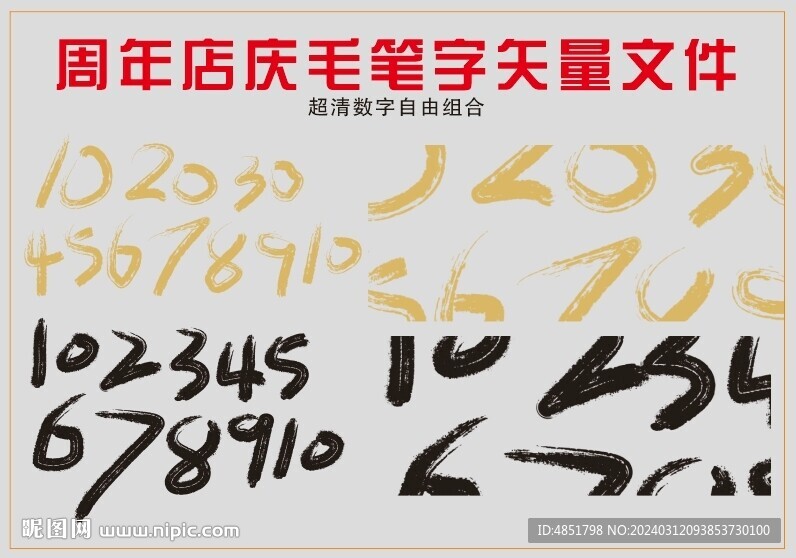 周年店庆毛笔字矢量文件
超清数字自由组合
102030
45678910
102345
678910
昵图网 www.nipic.com
ID:4851798 NO:20240312093853730100